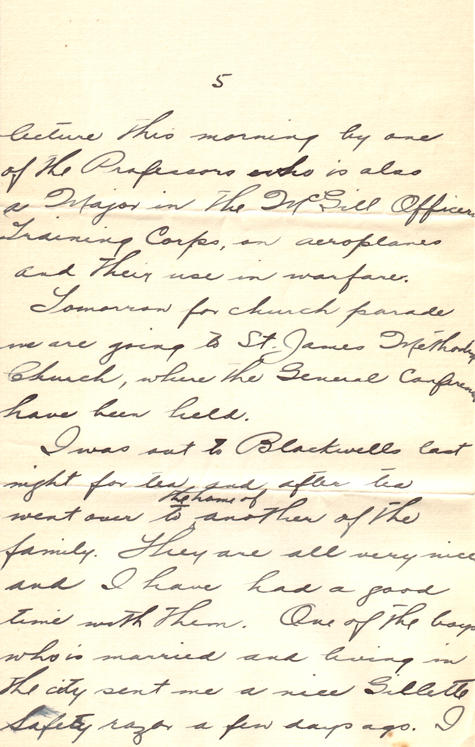 5
lecture this morning by one
of the Professors who is also
a Major in the McGill Officers
Training Corps, on aeroplanes
and their use in warfare.
Tomorrow for church parade
we are going to St. James Methodist
Church, where the General Conference
have been held.
I was out to Blackwells last
night for tea, and after tea
the home of
went over to another of the
family. They are all very nice
and I have had a good
time with them. One of the boys
who is married and living in
the city sent me a nice Gillette
Safety razor a few days ago. I